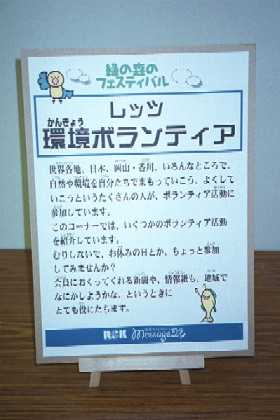 緑の森の
フェスティバル
レッツ
かんきょう
環境ボランティア
世界各地、日本、岡山・香川、いろんなところで、
自然や環境を自分たちで まもっていこう、よくして
いこうというたくさんの人が、ボランティア活動に
参加しています。
このコーナーでは、いくつかのボランティア活動
を紹介しています。
むりしないで、お休みの日とか、ちょっと参加
してみませんか？
会員におくってくれる新聞や、情報紙も、地域で
なにかしようかな、というときに
とても役にたちます。